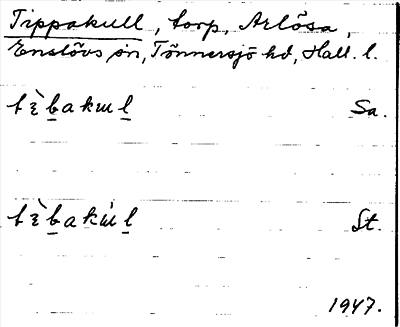 Tippakull, torp, Arlösa,
Enslövs sn, Tönnersjö hd, Hall. l.
tὲb̲akɯl̲ Sa.
tὲb̲akɯ̀l̲ St.
1947.